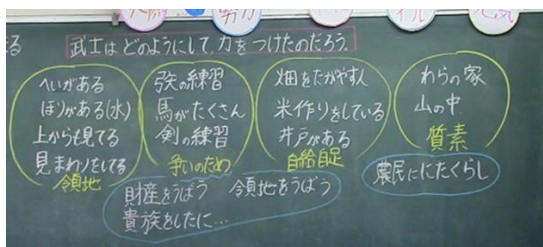 努力
元気
武士はどのようにして、力をつけたのだろう。
へいがある
ほりがある(水)
上からも見てる
見まわりをしてる
領地
馬がたくさん
剣の練習
争いのため
畑をたがやす人
米作りをしている
井戸がある
自給自足
わらの家
山の中
質素
農民ににたくらし
財産をうばう 領地をうばう
貴族をしたに…